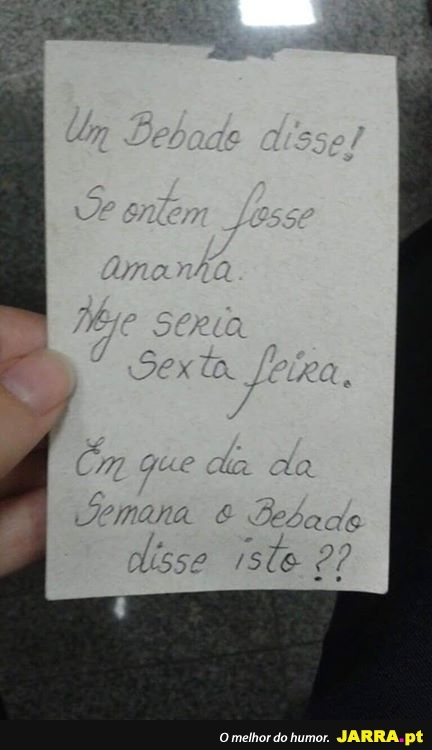 Um Bebado disse!
Se ontem fosse
amanha.
Hoje seria
Sexta feira.
Em que dia da
Semana o Bebado
disse isto??
O melhor do humor. JARRA.pt